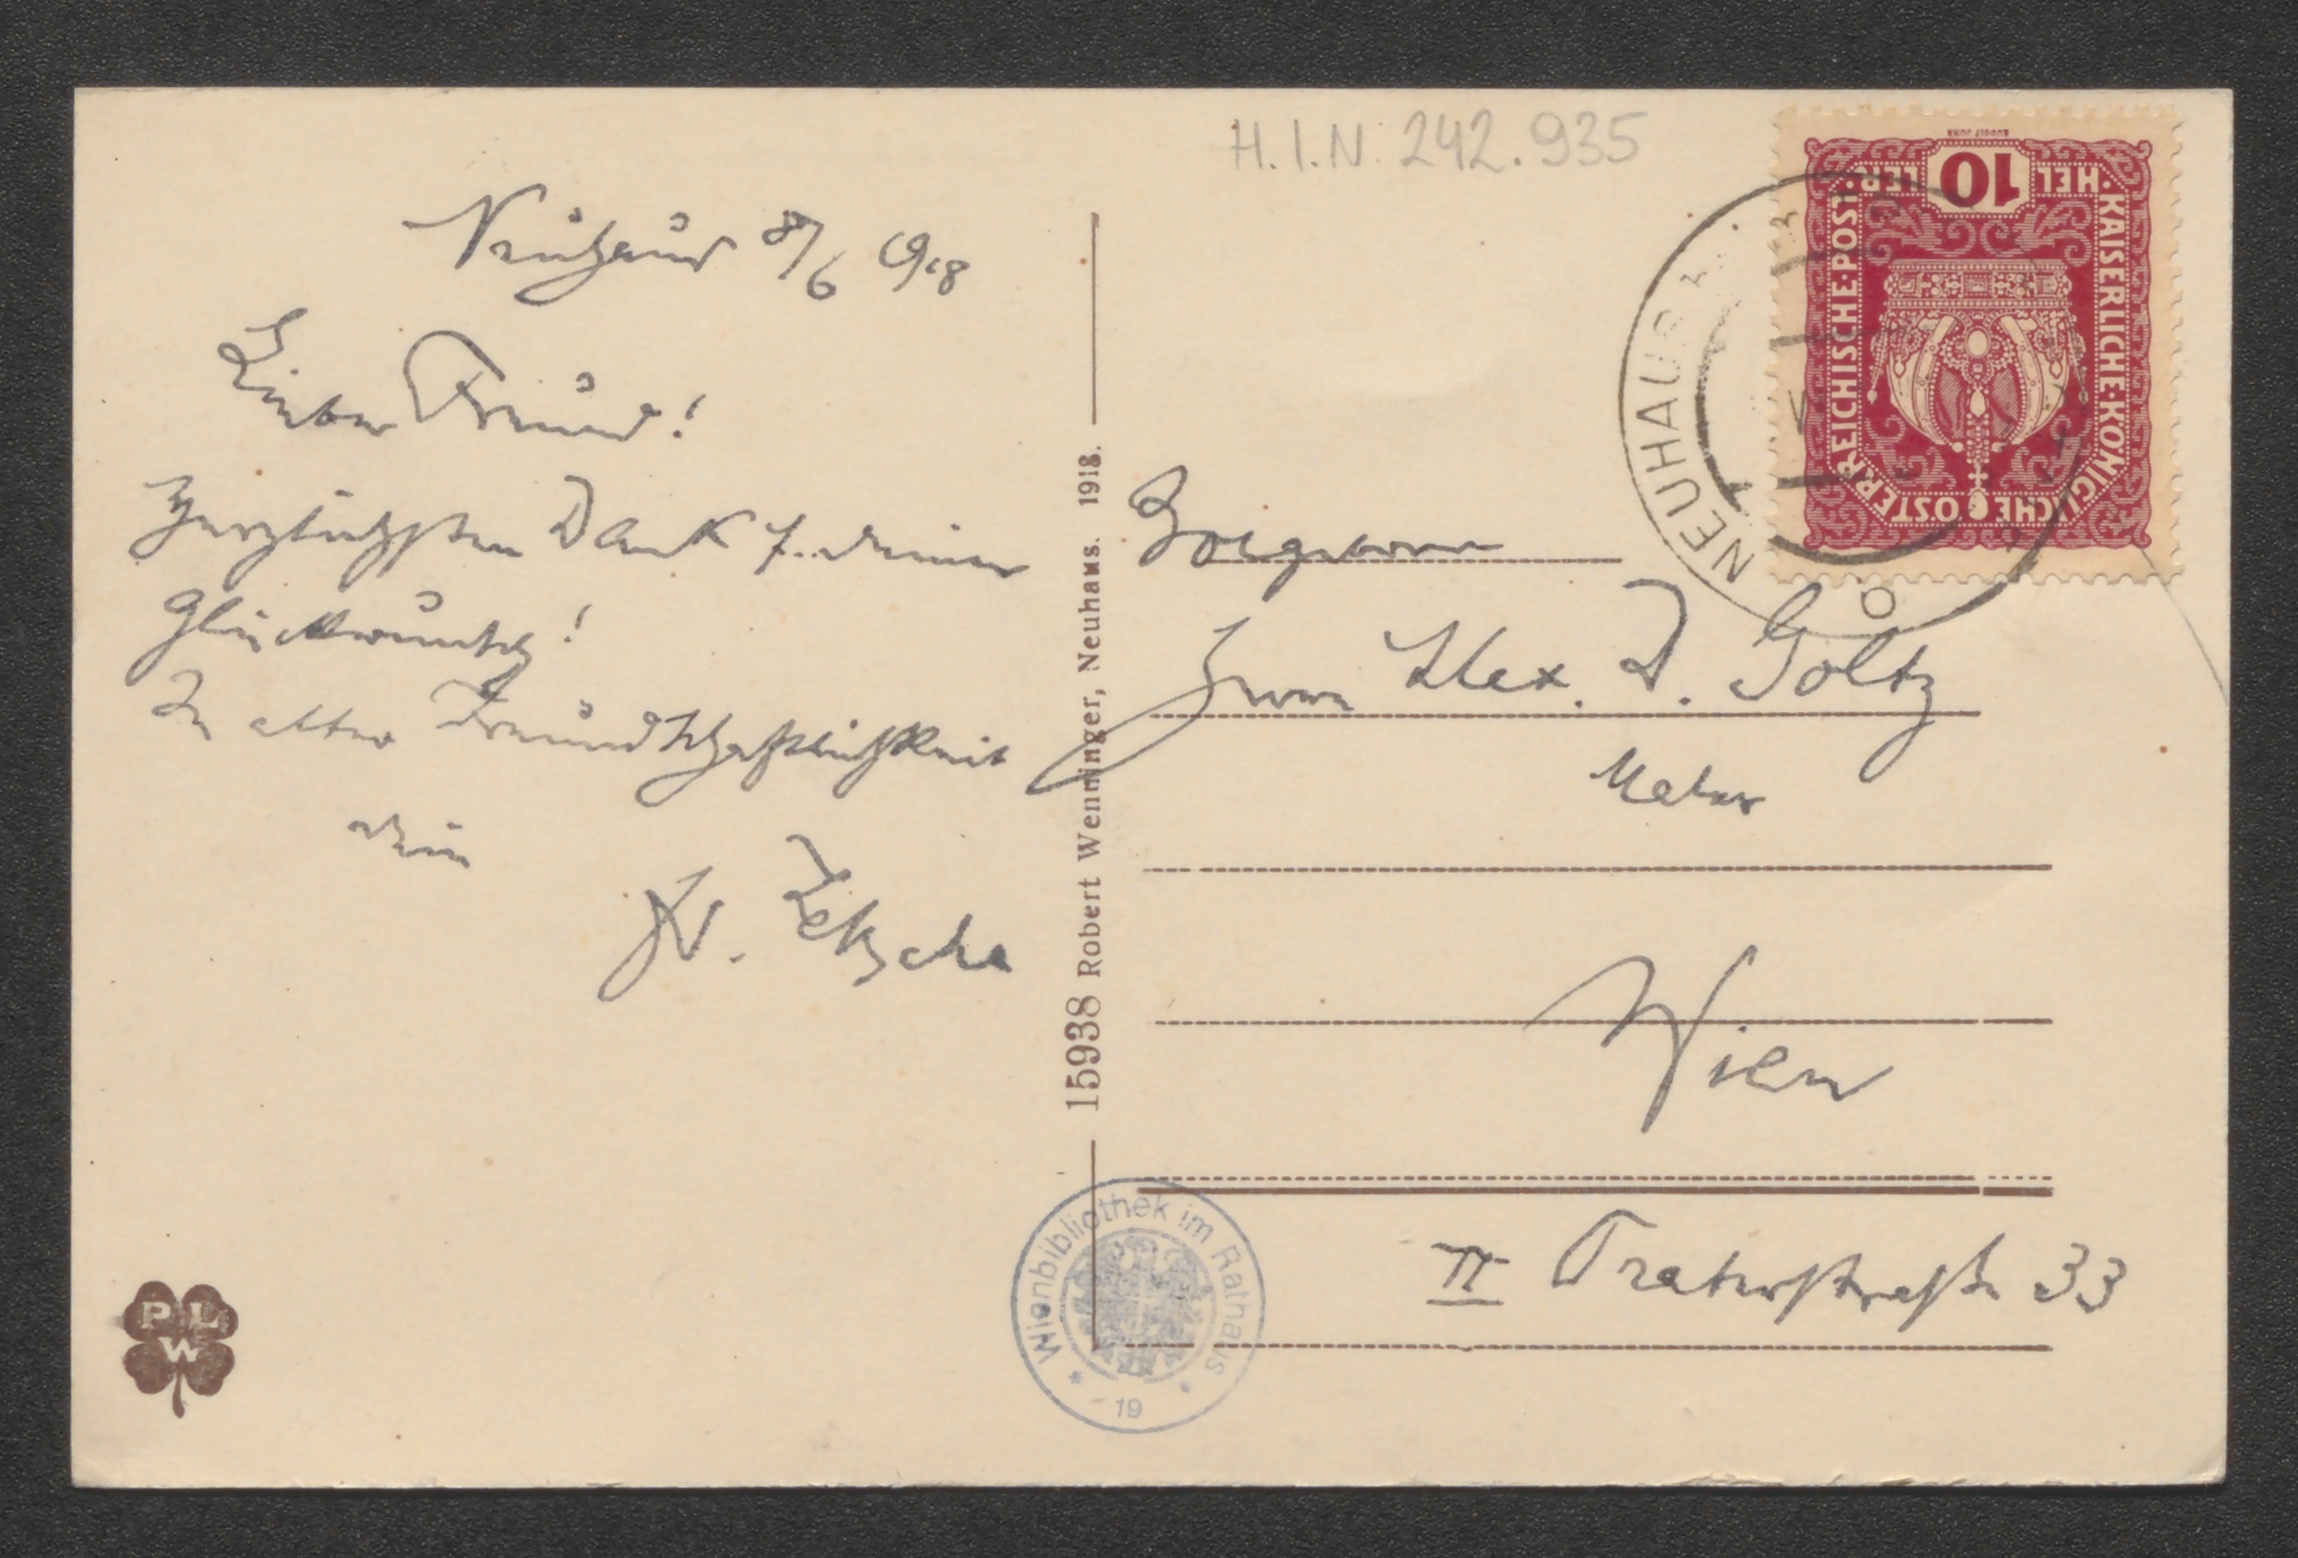 H.I.N. 242.935
Neuhaus 8/6 1918
Lieber Freund!
Herzlichsten Dank f. deinen
Glückwunsch!
In alter Freundschaftlichkeit
dein
Zetsche
15938 Robert Wenninger, Neuhaus. 1918.
Herrn Alex. D. Goltz
Maler
Wien
II Praterstraße 33
10
HEL LER
KAISERLICHE·KÖNIGLICHE ÖSTERREICHISCHE·POST
RUDOLF JUNK
NEUHAUS
Wienbibliothek im Rathaus
* 19 *
PL
W